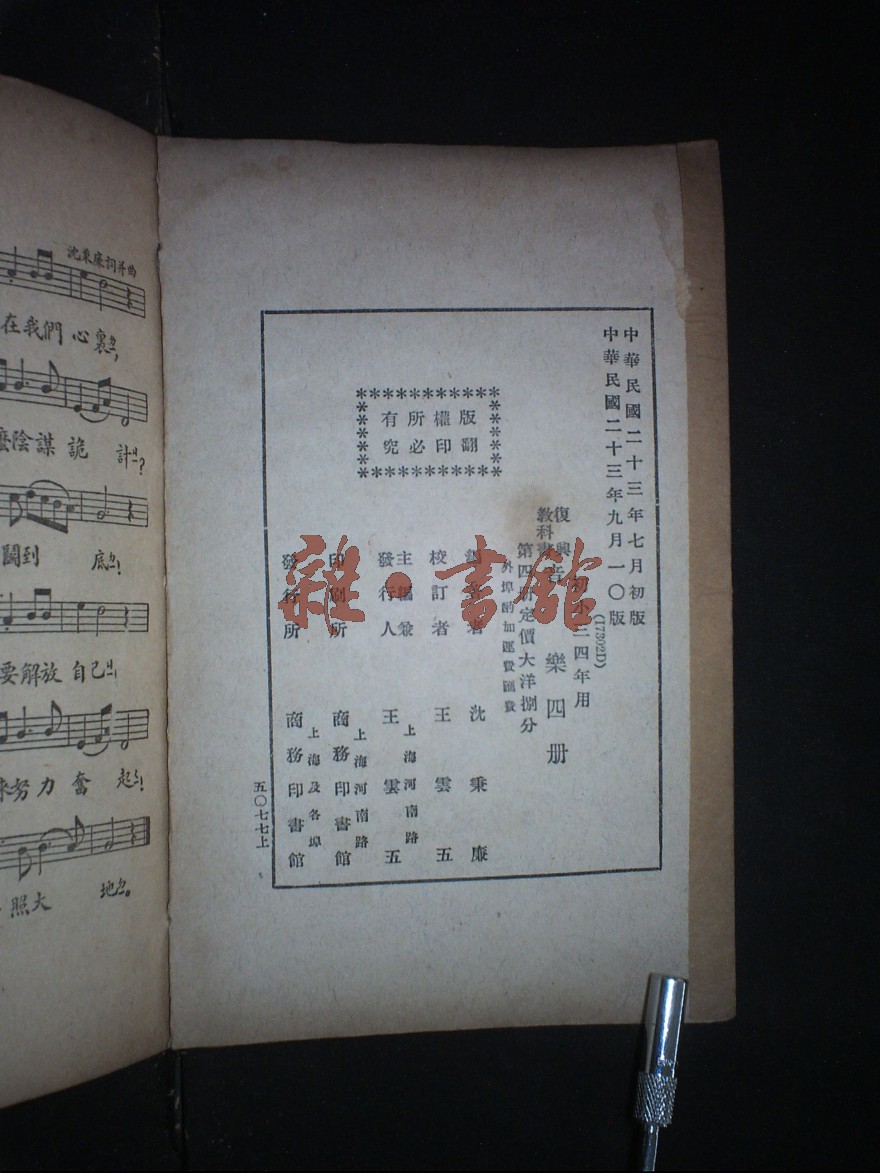 中華民國二十三年七月初版
中華民國二十三年九月一〇版
(17302D)
初小三四年用
復興
教科書
音樂四册
第四册定價大洋捌分
外埠酌加運費匯費
著者 沈秉廉
校訂者 王雲五
主編兼
發行人 王雲五
上海河南路
印刷所 商務印書館
上海河南路
發行所 商務印書館
上海及各埠
版權所有
翻印必究
五〇七七上
雜·書館
沈秉廉詞并曲
在我們心裏,
麼陰謀詭計?
鬬到底!
要解放自己,
來努力奮起!
照大地。